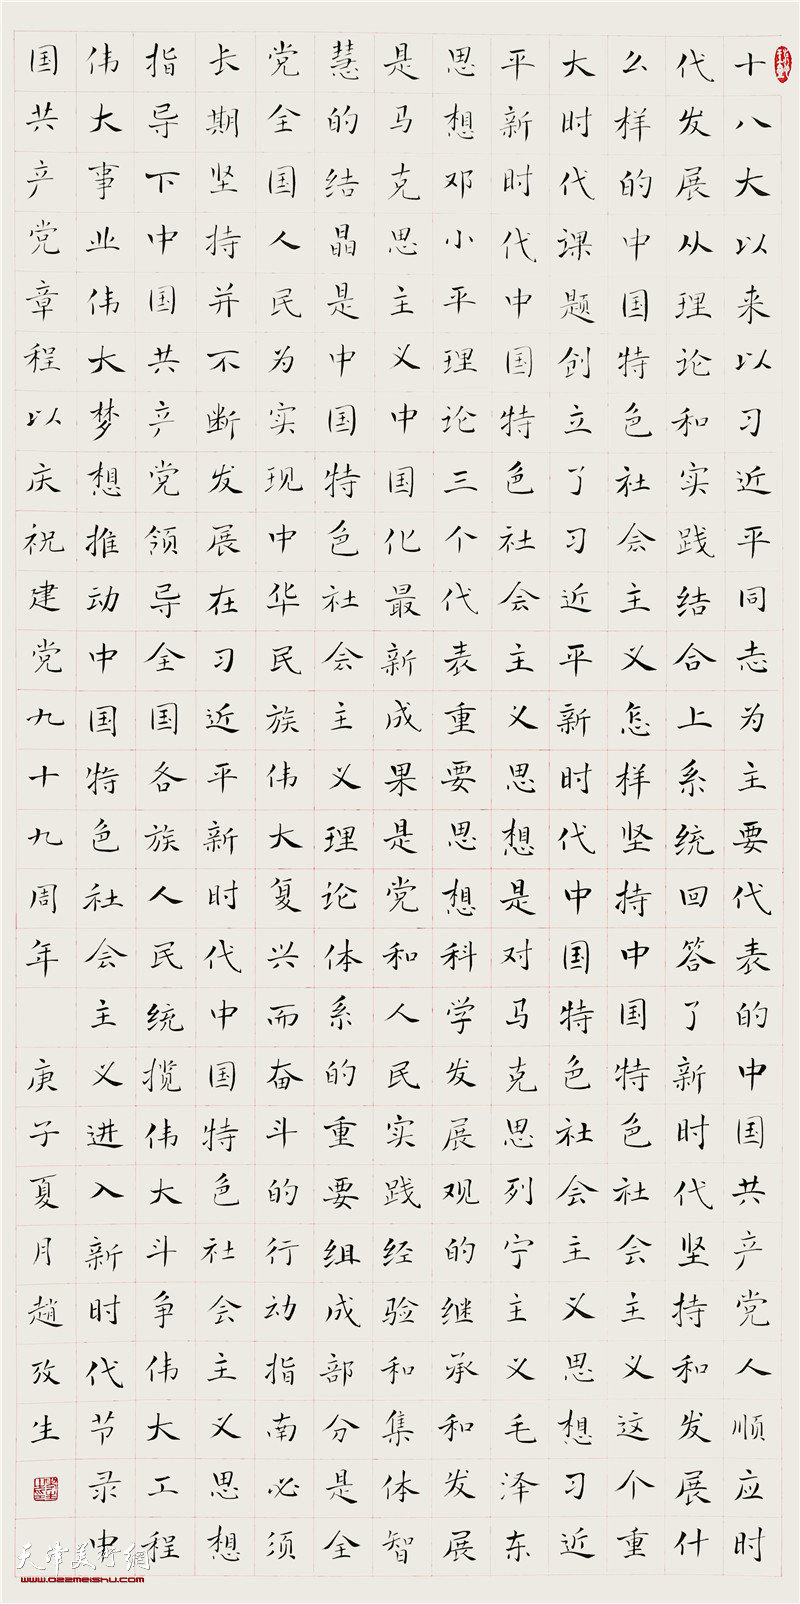 十八大以来以习近平同志为主要代表的中国共产党人顺应时
代发展从理论和实践结合上系统回答了新时代坚持和发展什
么样的中国特色社会主义怎样坚持中国特色社会主义这个重
大时代课题创立了习近平新时代中国特色社会主义思想习近
平新时代中国特色社会主义思想是对马克思列宁主义毛泽东
思想邓小平理论三个代表重要思想科学发展观的继承和发展
是马克思主义中国化最新成果是党和人民实践经验和集体智
慧的结晶是中国特色社会主义理论体系的重要组成部分是全
党全国人民为实现中华民族伟大复兴而奋斗的行动指南必须
长期坚持并不断发展在习近平新时代中国特色社会主义思想
指导下中国共产党领导全国各族人民统揽伟大斗争伟大工程
伟大事业伟大梦想推动中国特色社会主义进入新时代节录中
国共产党章程以庆祝建党九十九周年 庚子夏月趙孜生
天津美術網
www.022meishu.com